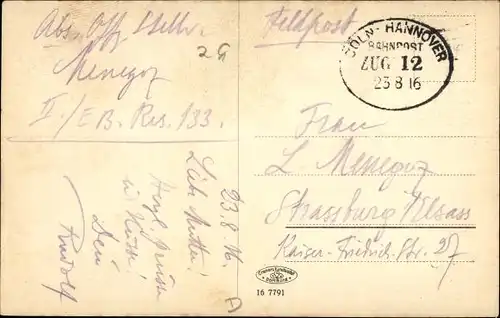 Abs. Off. Stellv.
Menegoz
II./E.B. Res. 133.
29
Feldpost
CÖLN-HANNOVER
BAHNPOST
ZUG 12
23 8 16
Frau
L Menegoz
Strassburg Elsass
Kaiser-Friedrich-Str. 27
23.8.16.
Liebe Mutter!
Herzl. Grüsse
u Küsse!
Dein
Rudolf
A
16 7791